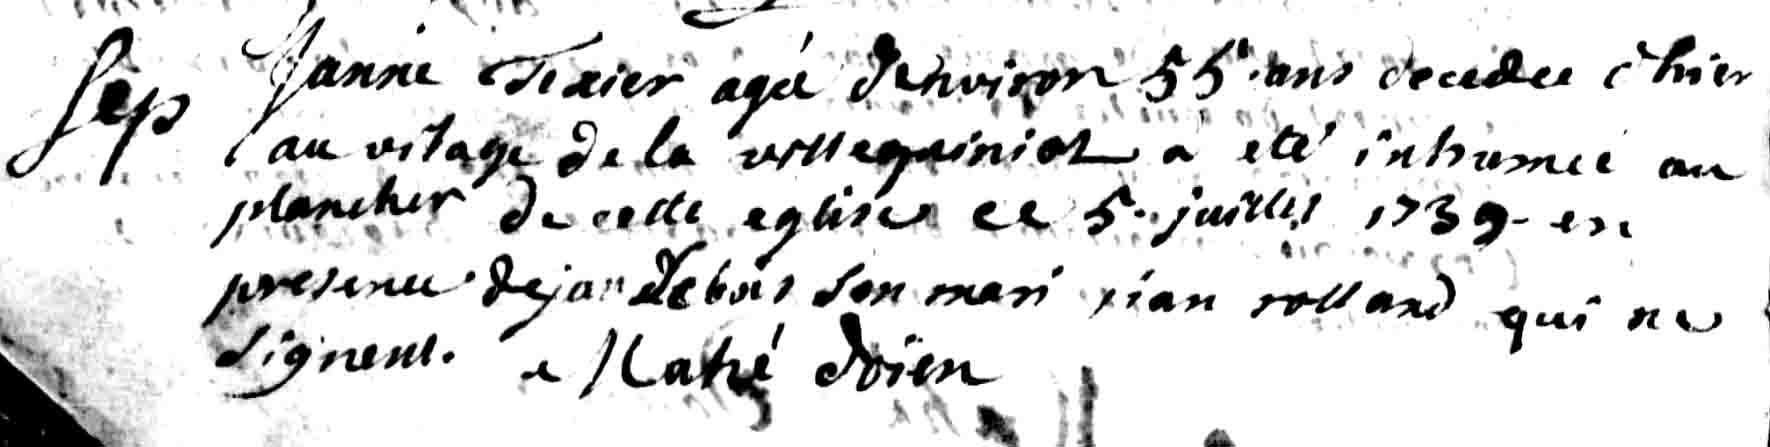 Sep Janne Texier agée denviron 55 ans decedee d'hier
au vilage de la villeguiniot a eté inhumée au
plancher de cette eglise ce 5. juillet 1739. en
presence de jan son mari jan rolland qui ne
signent. doien